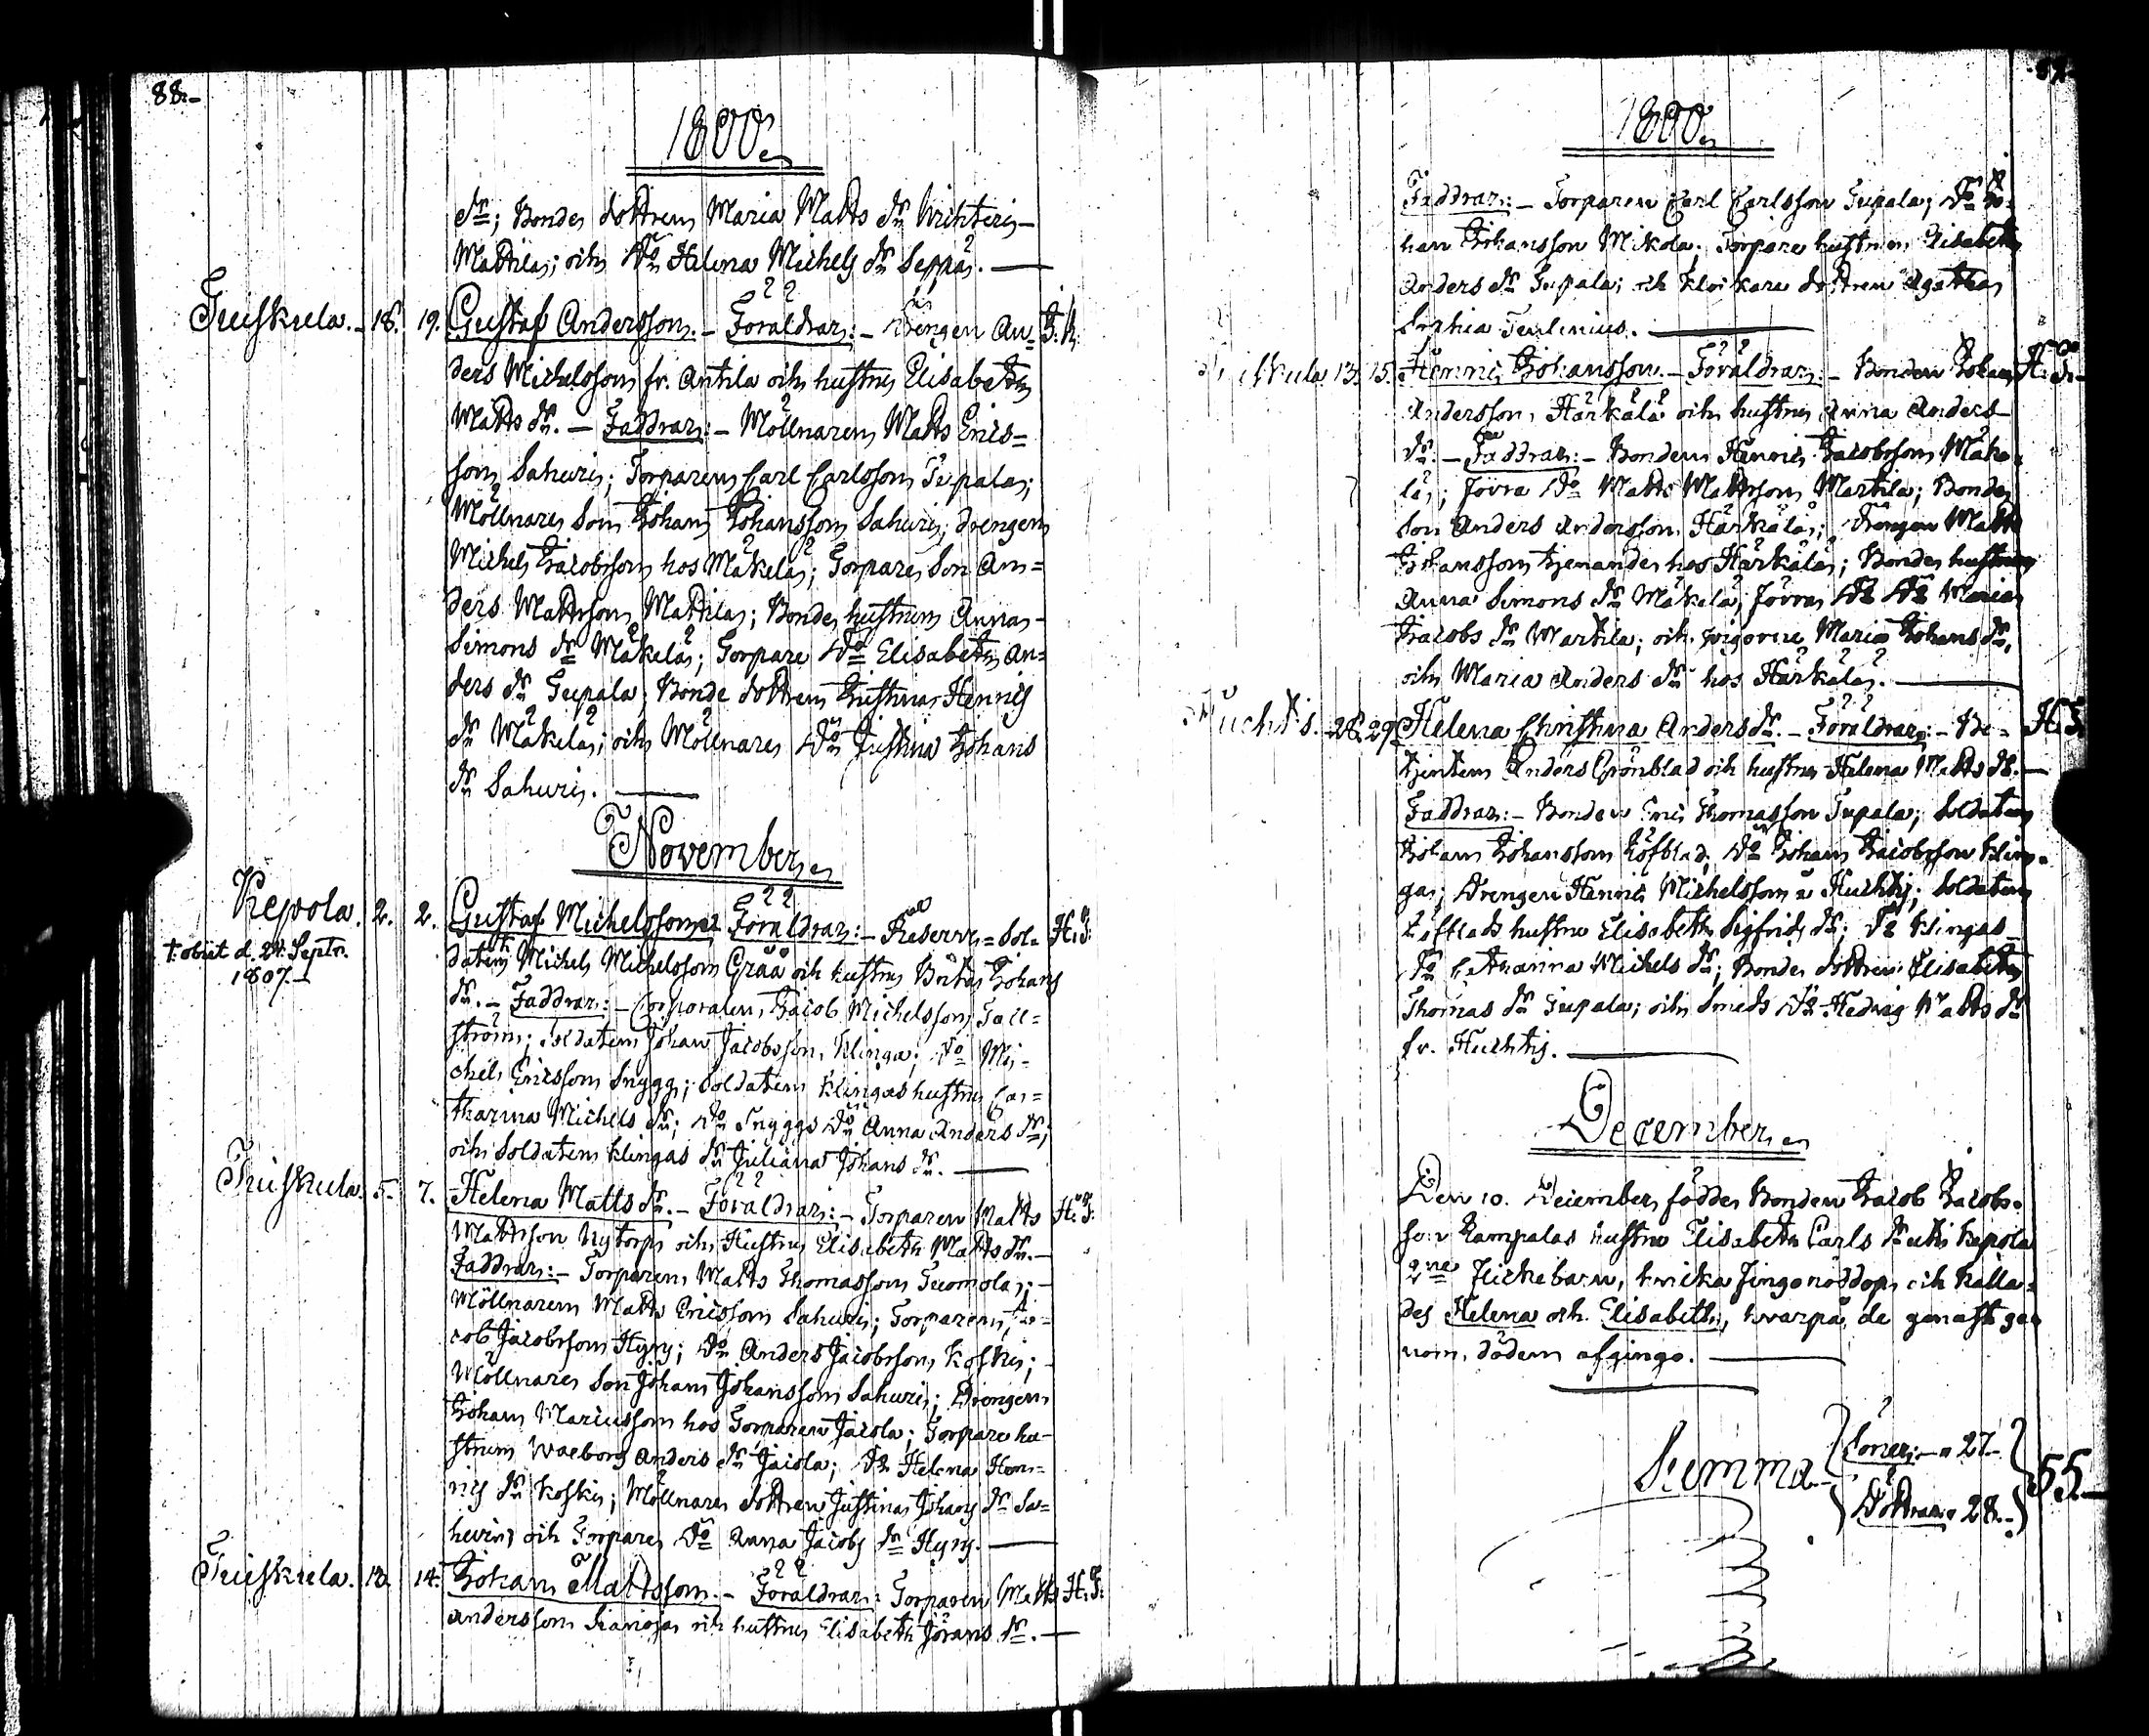 88.-
1800.
dr; Bonde dottren Maria Matts dr
Mattila; och Do Helena Michels dr Seppä.
Juskula. 18. 19. Gustaf Andersson. - Föräldrar: - Drengen An=
ders Michelsson fr. Antila och hustru Elisabeth
Matts dr. - Faddrar: - Möllnaren Matts Erics=
son Sahuri; Torparen Carl Carlsson Tupala;
Möllnare Son Johan Johansson Sahuri; Drengen
Michel Jacobsson hos Mäkelä; Torpare Son An=
ders Mattsson Mattila; Bonde hustrun Anna
Simons dr Mäkelä; Torpare Do Elisabeth An=
ders dr Tupala; Bonde dottren Justina Henrics
dr Mäkelä; och Möllnare Do Justina Johans
dr Sahuri.
November
Kepola. 2. 2. Gustaf Michelsson. Föräldrar: - Reserve=Sol= H: F:
† obiit d. 24. Septr.
1807.-
daten Michel Michelsson Gråå och hustru Brita Johans
dr. - Faddrar: - Corporalen Jacob Michelsson Fall=
ström; Soldaten Johan Jacobsson Klinga; Do Mi=
chel Ericsson Snygg; Soldaten Klingas hustru Ca=
tharina Michels dr; Do Snyggs Do Anna Anders dr;
och Soldaten Klingas dr Juliana Johans dr.
Juskula. 5. 7. Helena Matts dr. - Föräldrar: - Torparen Matts H: F:
Mattsson Nytorp och Hustru Elisabeth Matts dr. -
Faddrar: - Torparen Matts Thomasson Tuomola; -
Möllnaren Matts Ericsson Sahuri; Torparen Ja=
cob Jacobsson Hyry; Do Anders Jacobsson Koski;
Möllnare Son Johan Johansson Sahuri; Drengen
Johan Mariusson hos Torparen Jacola; Torpare hu=
strun Walborg Anders dr Jacola; Do Helena Hen=
rics dr Koski; Möllnare dottren Justina Johans dr Sa=
huri; och Torpare Do Anna Jacobs dr Hyry.
Juskula. 13. 14. Johan Mattsson. - Föräldrar: Torparen Matts H: F:
Andersson och hustru Elisabeth Jörans dr.
1800.
Faddrar: - Torparen Carl Carlsson Tupala; Do Jo=
han Johansson Mikola; Torpare hustrun Elisabeth
Anders dr Tupala; och Klockare dottren Agatha
Sophia Terlenius.
Juskula. 13. 15. Henric Johansson. - Föräldrar: - Bonden Johan H: F:
Andersson Härkälä och hustru Anna Anders
dr. - Faddrar: - Bonden Henric Jacobsson Mäke=
lä; förra Do Matts Mattsson Martila; Bonde
Son Anders Andersson Härkälä; Drengen Matts
Johansson tjenande hos Härkälä; Bonde hustrun
Anna Simons dr Mäkelä; förra Do Do Maria
Jacobs dr Martila; och pigorne Maria Johans dr,
och Maria Anders dr hos Härkälä.
Huchtis. 28. 29. Helena Christina Anders dr. - Föräldrar: - Be= H: F:
tjenten Anders Grönblad och hustru Helena Matts dr. -
Faddrar: - Bonden Eric Thomasson Tupala; Soldaten
Johan Johansson Löfblad; Do Johan Jacobsson Klin=
ga; Drengen Henric Michelsson Huchti; Soldaten
Löfblads hustru Elisabeth Sigfrids dr; Do Klingas
Do Catharina Michels dr; Bonde dottren Elisabeth
Thomas dr Tupala; och Smeds Do Hedvig Matts dr
fr. Huchti.
December
Den 10. December födde Bonden Jacob Jacobs=
son Kampalas hustru Elisabeth Carls dr uti Kepola
2ne flickebarn, hvilka fingo nöddop och kalla=
des Helena och Elisabeth, hvarpå de genast ge=
nom döden afgingo.
Summa Söner: - 27.-
Döttrar 28.-
55.-